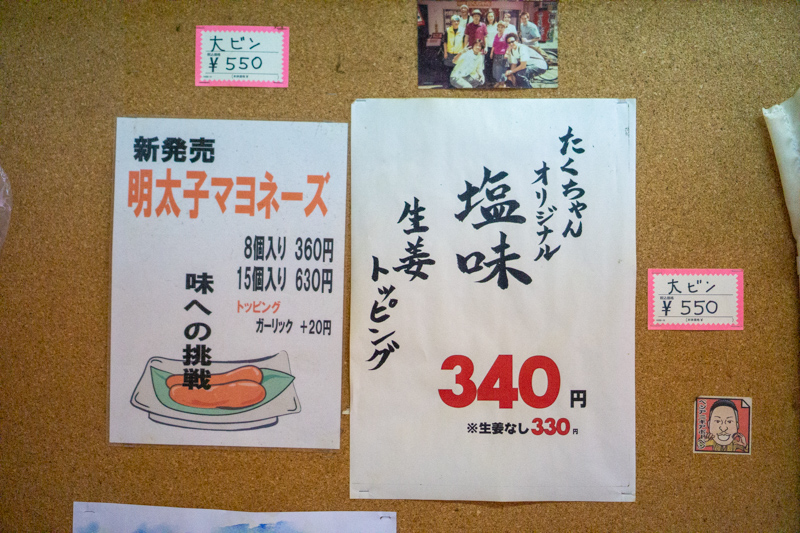 大ビン
¥550
新発売
明太子マヨネーズ
8個入り 360円
15個入り 630円
トッピング
ガーリック +20円
味への挑戦
たくちゃん
オリジナル
塩味
生姜
トッピング
340円
※生姜なし330円
大ビン
¥550